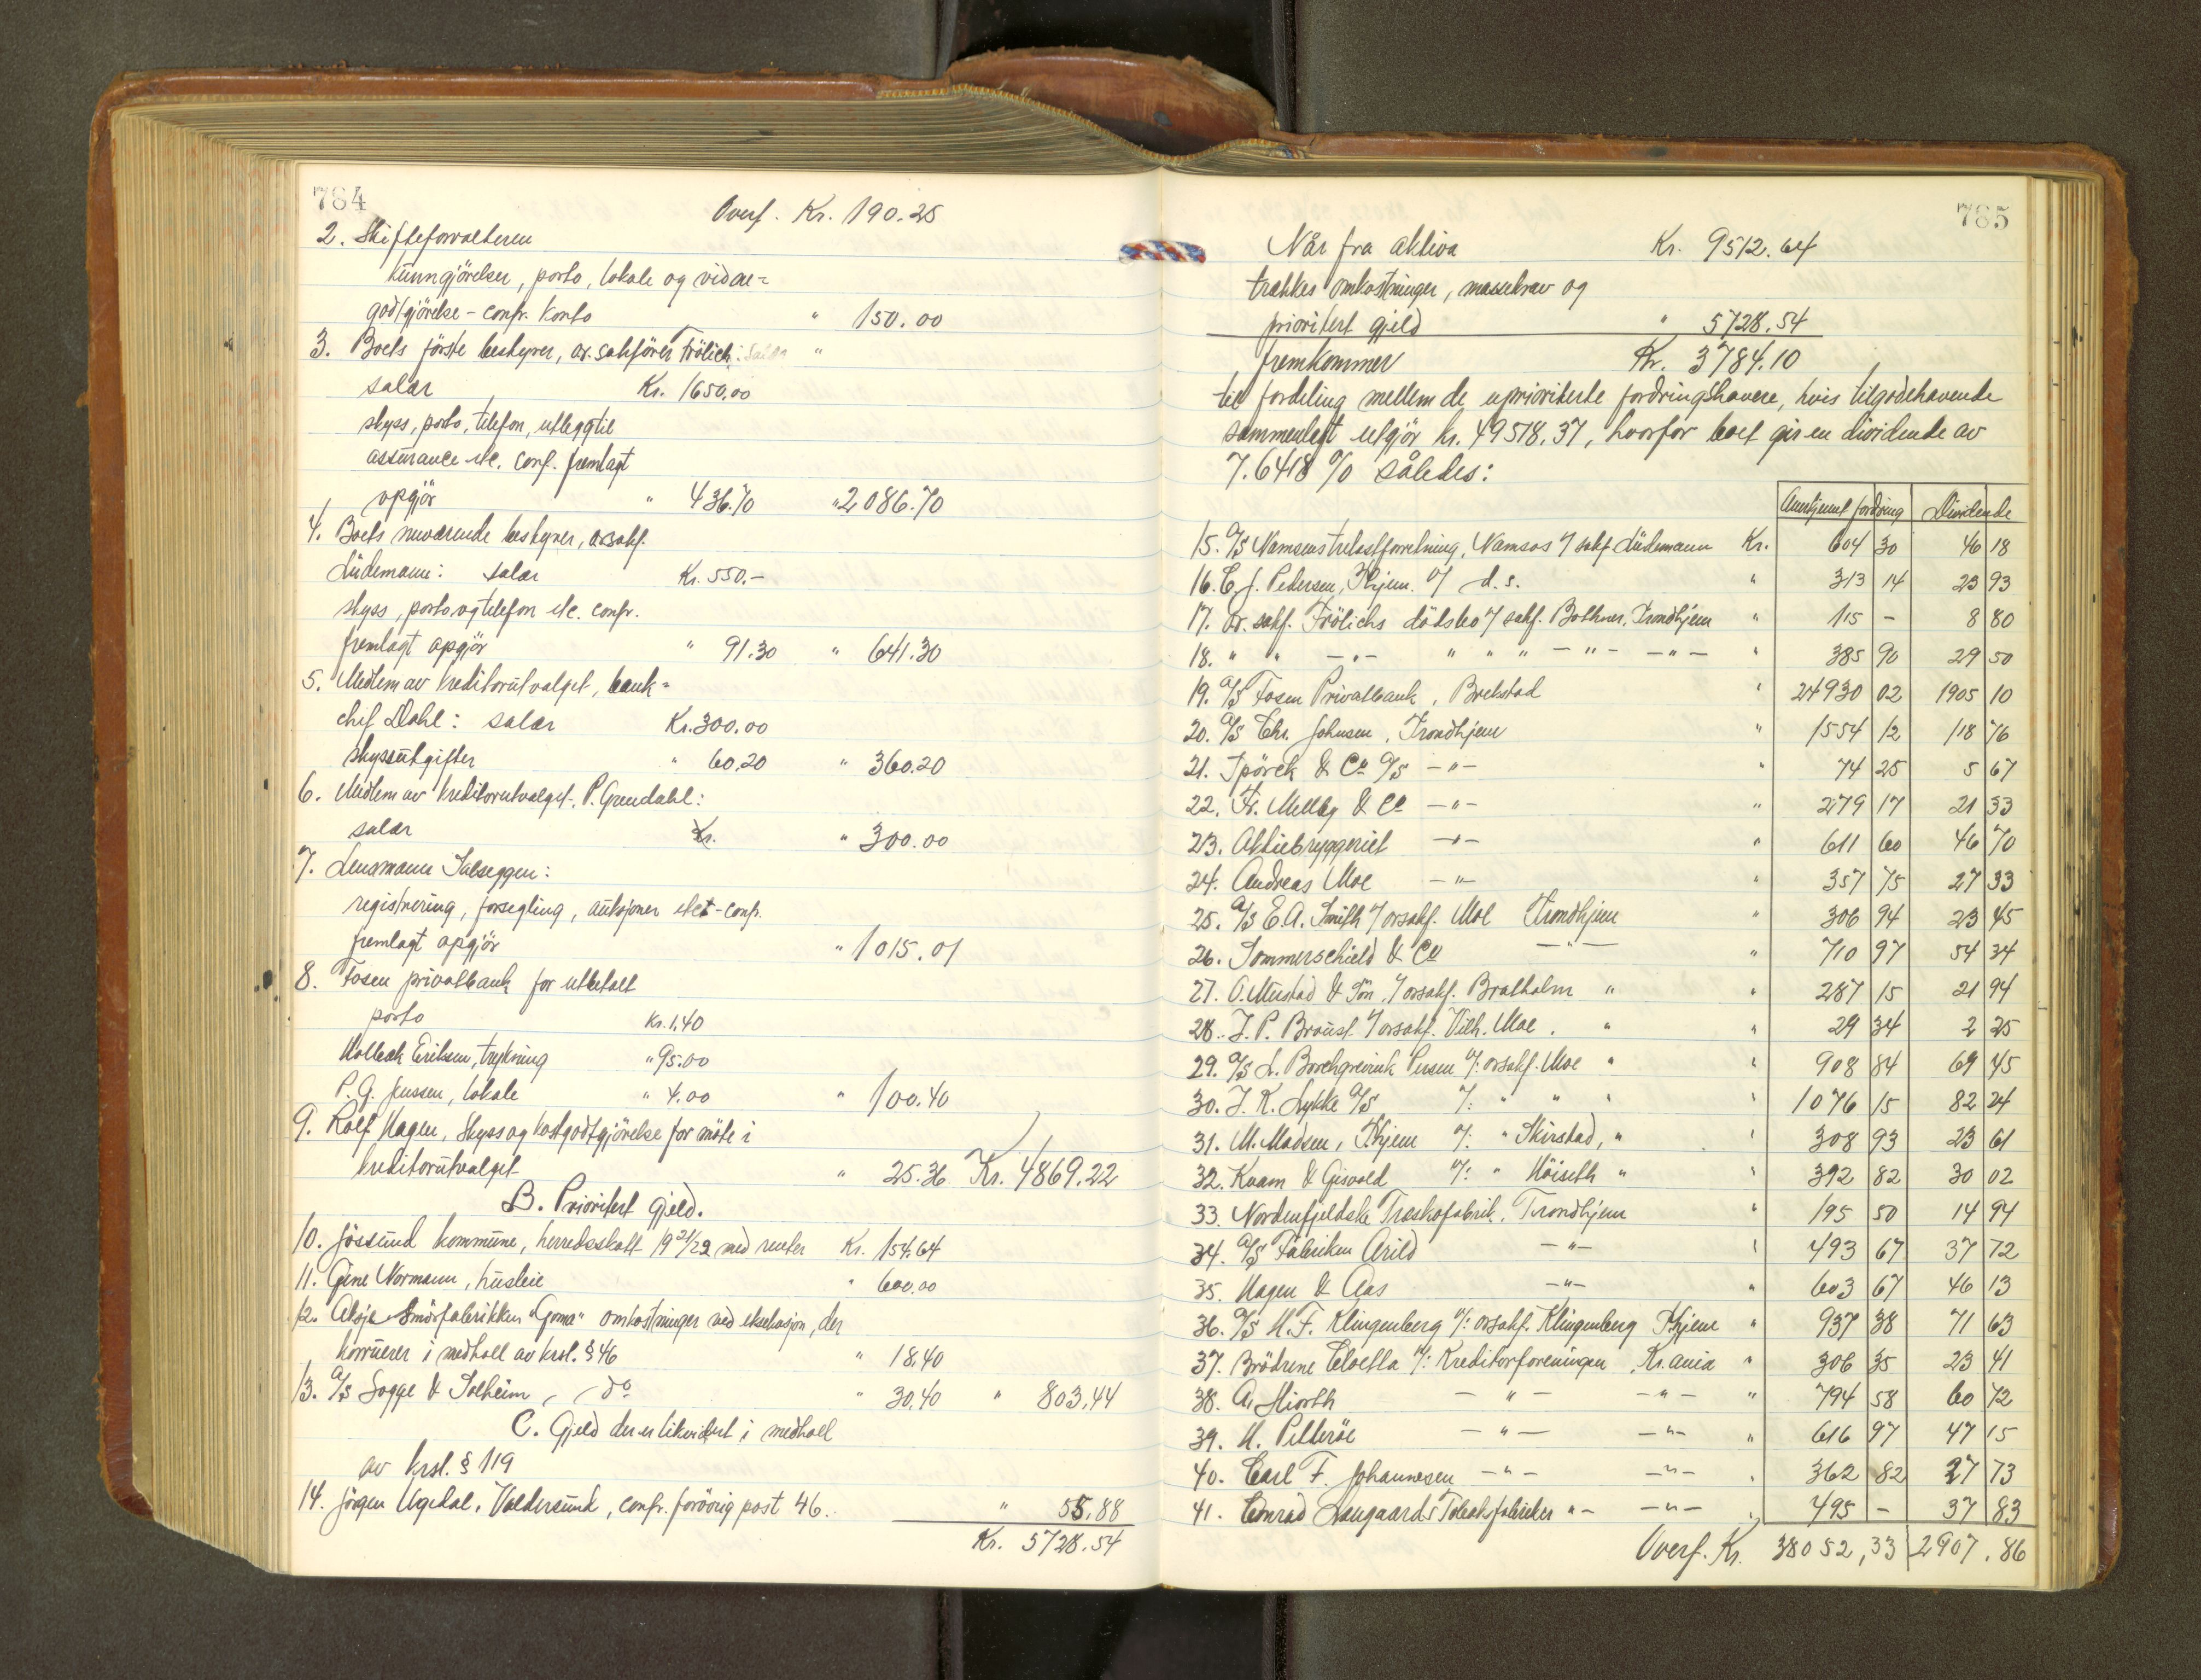 784
Overf. Kr. 190.25
2. Skifteforvalteren
kunngjörelser, porto, lokale og vidne=
godtgjörelse - confr. konto " 150.00
3. Boets förste bestyrer, or. sakförer Frölich: "
salær Kr. 1650.00
skyss, porto, telefon, utlegg til
assurance etc. conf. fremlagt
opgjör " 436.70 " 2086.70
4. Boets nuværende bestyrer, orsakf.
Lüdemann: salær Kr. 550.-
skyss, porto, og telefon etc. confr.
fremlagt opgjör " 91.30 " 641.30
5. Medlem av kreditorutvalget, bank=
chef Dahl: salær Kr. 300.00
skyssutgifter " 60.20 " 360.20
6. Medlem av kreditorutvalget, P. Grendahl:
salær Kr. " 300.00
7. Lensmann Salseggen:
registrering, forsegling, auksjoner etc - confr.
fremlagt opgjör " 1015.01
8. Fosen privatbank for utbetalt
porto Kr. 1.40
Holbæk Eriksen, trykning " 95.00
P. G. Jenssen, lokale " 4.00 " 100.40
9. Rolf Hagen, skyss og kostgodtgjörelse for möte i
kreditorutvalget " 25.36 Kr. 4869.22
B. Prioritert gjeld.
10. Jössund kommune, herredsskatt 1921/22 med renter Kr. 154.64
11. Gine Normann, husleie " 600.00
12. Aksje Smörfabrikken "Goma" omkostninger ved eksekusjon, der
konkurrerer i medhold av krsl. § 46 " 18.40
13. A/S Sogge & Solheim, do " 30.40 " 803.44
C. Gjeld der er likvidert i medhold
av krsl. § 119
14. Jörgen Ugedal, Valdersund, confr. forövrig post 46. " 55.88
Kr. 5728.54
785
Når fra aktiva Kr. 9512.64
trækkes omkostninger, massekrav og
prioritert gjeld " 5728.54
fremkommer Kr. 3784.10
til fordeling mellem de uprioriterte fordringshavere, hvis tilgodehavende
sammenlagt utgjör kr. 49518.37, hvorfor boet gir en dividende av
7.6418 % således:
Anerkjent fordring Dividende
15. A/S Namsens trelastforretning, Namsos v/ sakf. Lüdemann Kr. 604 30 46 18
16. C. J. Pedersen, Thjem. v/ d. s. " 313 14 23 93
17. Or. sakf. Frölichs dödsbo v/ sakf. Bothner, Trondhjem " 115 - 8 80
18. " " - " - " " " - " - - " - " 385 90 29 50
19. A/S Fosen Privatbank, Brekstad " 24930 02 1905 10
20. A/S Chr. Johnsen, Trondhjem " 1554 12 118 76
21. Spörck & Co A/S - " - " 74 25 5 67
22. Fr. Melby & Co - " - " 279 17 21 33
23. Aktiebryggeriet - " - " 611 60 46 70
24. Andreas Moe - " - " 357 75 27 33
25. A/S E. A. Smith v/ orsakf. Moe Trondhjem " 306 94 23 45
26. Sommerschield & Co - " - " 710 97 54 34
27. O. Mustad & Sön v/ orsakf. Bratholm " " 287 15 21 94
28. J. P. Broust v/ orsakf. Vilh. Moe. " " 29 34 2 25
29. A/S L. Borchgrevink Persen v/: orsakf. Moe " " 908 84 69 45
30. J. K. Lykke A/S v/: " " " " 1076 15 82 24
31. M. Madsen, Thjem v/: " Skirstad, " " 308 93 23 61
32. Kvam & Gisvold v/: " Höiseth " " 392 82 30 02
33. Nordenfjeldske Træskofabrik, Trondhjem " 195 50 14 94
34. A/S Fabriken Arild - " - " 493 67 37 72
35. Hagen & Aas - " - " 603 67 46 13
36. A/S H. F. Klingenberg v/: orsakf. Klingenberg Thjem " 937 38 71 63
37. Brödrene Cloetta v/: Kreditorforeningen, Kr.ania " 306 35 23 41
38. A. Hiorth - " - - " - " 794 58 60 72
39. H. Petteröe - " - - " - " 616 97 47 15
40. Carl F. Johannesen - " - - " - " 362 82 27 73
41. Conrad Langaards Tobaksfabriker " - - " - " 495 - 37 83
Overf. Kr. 38052,33 2907.86